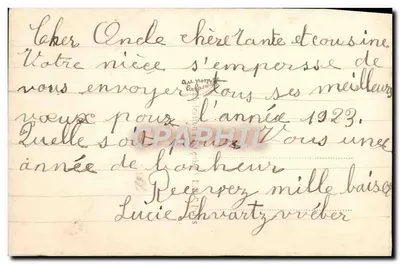 Cher Oncle chère tante et cousine
Votre nièce s'empersse de
vous envoyer tous ses meilleurs
vœux pour l'année 1923.
Quelle soit pour Vous une
année de bonheur
Recevez mille baiser
Lucie Schvartz vvéber